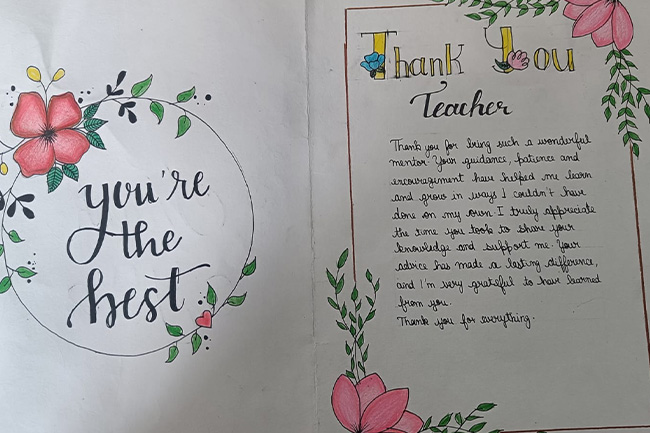 you're
the
best
Thank You
Teacher
Thank you for being such a wonderful
mentor. Your guidance, patience and
encouragement have helped me learn
and grow in ways I couldn't have
done on my own. I truly appreciate
the time you took to share your
knowledge and support me. Your
advice has made a lasting difference,
and I'm very grateful to have learned
from you.
Thank you for everything.